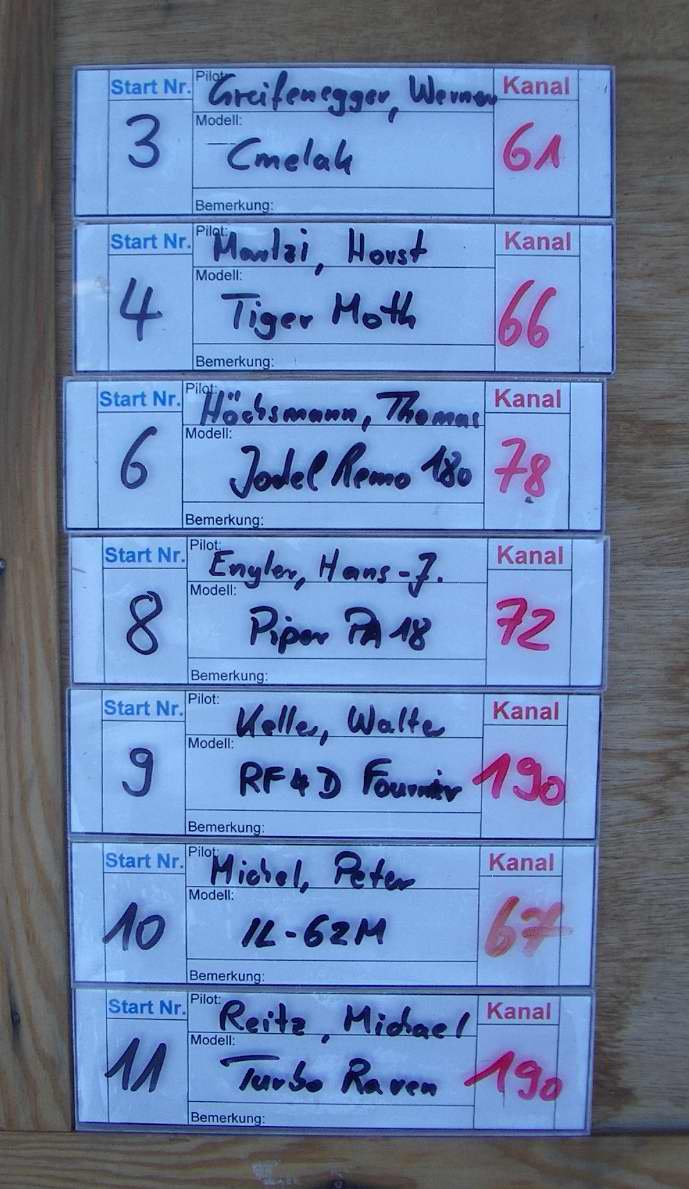 Start Nr. Pilot: Greifenegger, Werner Kanal
3 Modell: Cmelak 61
Bemerkung:
Start Nr. Pilot: Horst Kanal
4 Modell: Tiger Moth 66
Bemerkung:
Start Nr. Pilot: Höchsmann, Thomas Kanal
6 Modell: Jodel Remo 180 78
Bemerkung:
Start Nr. Pilot: Engler, Hans-J. Kanal
8 Modell: Piper PA 18 72
Bemerkung:
Start Nr. Pilot: Keller, Walter Kanal
9 Modell: RF4D Fournier 190
Bemerkung:
Start Nr. Pilot: Michel, Peter Kanal
10 Modell: IL-62M 67
Bemerkung:
Start Nr. Pilot: Reitz, Michael Kanal
11 Modell: Turbo Raven 190
Bemerkung: